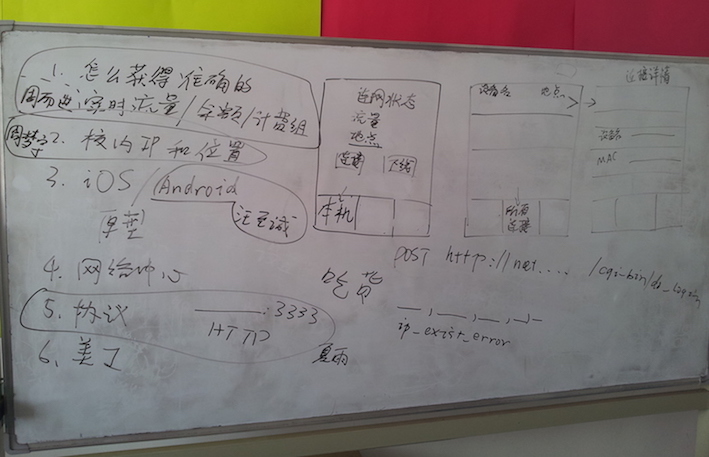 1. 怎么获得准确的
实时流量/余额/计费组
2. 校内IP和位置
3. iOS/Android
原型
汪至诚
4. 网络中心
5. 协议 :3333
HTTP
6. 美工
吃货
夏雨
连网状态
流量
地点
连接 下线
本机
设备名 地点
所有
连接
连接详情
设备名
MAC
POST http://net.... /cgi-bin/do_login
ip_exist_error